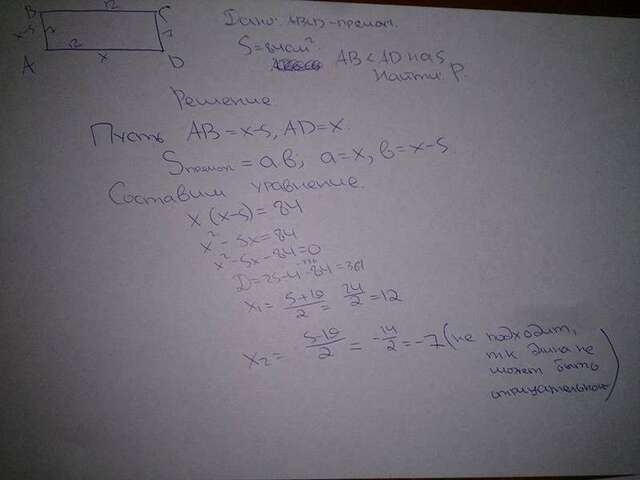 B 12 C
x-5 7 7
12
A x D
Дано: ABCD-прямоуг.
S=84см²
AB < AD на 5
Найти: P.
Решение
Пусть AB = x-5, AD = x.
Sпрямоуг = a·b; a=x, b=x-5
Составим уравнение.
x (x-5) = 84
x² - 5x = 84
x² - 5x - 84 = 0
D = 25-4·-84 = 361
x₁ = (5+19)/2 = 24/2 = 12
x₂ = (5-19)/2 = -14/2 = -7 (не подходит,
тк длина не
может быть
отрицательной)